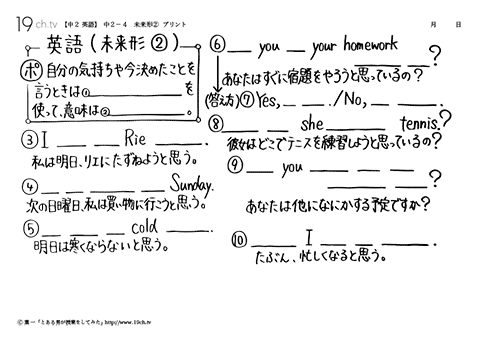 19 ch.tv 【中2 英語】 中2-4 未来形② プリント 月 日
英語 (未来形 ②)
ポ 自分の気持ちや今決めたことを
言うときは①________を
使って、意味は②________。
③ I ___ ___ Rie ___.
私は明日、リエにたずねようと思う。
④ ___ ___ ___ ___ ___ Sunday.
次の日曜日、私は買い物に行こうと思う。
⑤ ___ ___ ___ cold ___.
明日は寒くならないと思う。
⑥ ___ you ___ your homework
___ ___?
あなたはすぐに宿題をやろうと思っているの?
(答え方) ⑦ Yes, ___ ___. /No, ___ ___.
⑧ ___ ___ she ___ tennis?
彼女はどこでテニスを練習しようと思っているの?
⑨ ___ you ___ ___ ___
___ ___?
あなたは他になにかする予定ですか?
⑩ ___ I ___ ___ ___.
たぶん、忙しくなると思う。
© 葉一「とある男が授業をしてみた」http://www.19ch.tv